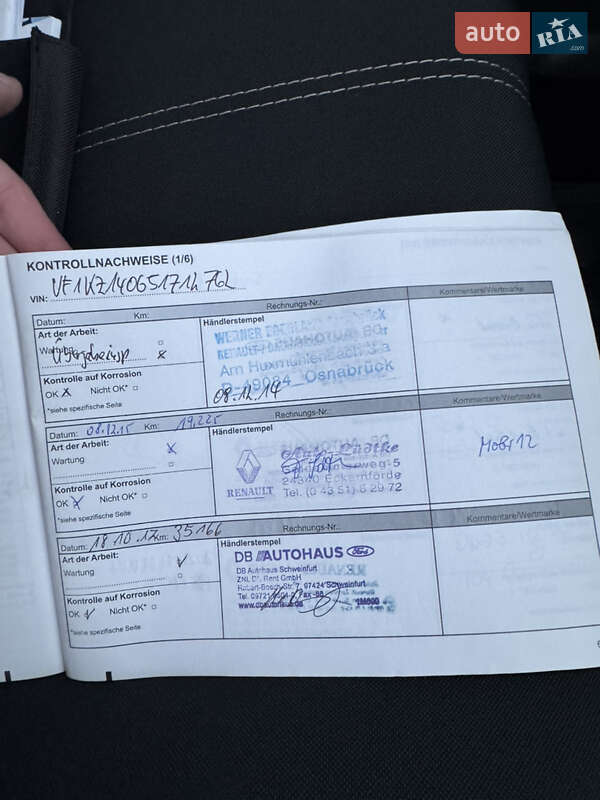 auto RIA .com
KONTROLLNACHWEISE (1/6)
VIN: VF1KZ140651712762
Datum: Km: Rechnungs-Nr.: Kommentare/Wertmarke
Art der Arbeit: Händlerstempel
Wartung
Kontrolle auf Korrosion
OK X Nicht OK*
*siehe spezifische Seite
WERNER
RENAULT
Am Huxmühlenbach
D-49084 Osnabrück
08.12.14
Datum: 08.12.15 Km: 19.225 Rechnungs-Nr.: Kommentare/Wertmarke
Art der Arbeit: X Händlerstempel
Wartung
Kontrolle auf Korrosion
OK X Nicht OK*
*siehe spezifische Seite
RENAULT
weg-5
24340 Eckernförde
Tel. (0 43 51) 6 29 72
Datum: 18 10.17 Km: 35166 Rechnungs-Nr.: Kommentare/Wertmarke
Art der Arbeit: Händlerstempel
Wartung
Kontrolle auf Korrosion
OK Nicht OK*
*siehe spezifische Seite
DB AUTOHAUS Ford
DB Autohaus Schweinfurt
Rent GmbH
Robert-Bosch-Str. 7, 97424 Schweinfurt